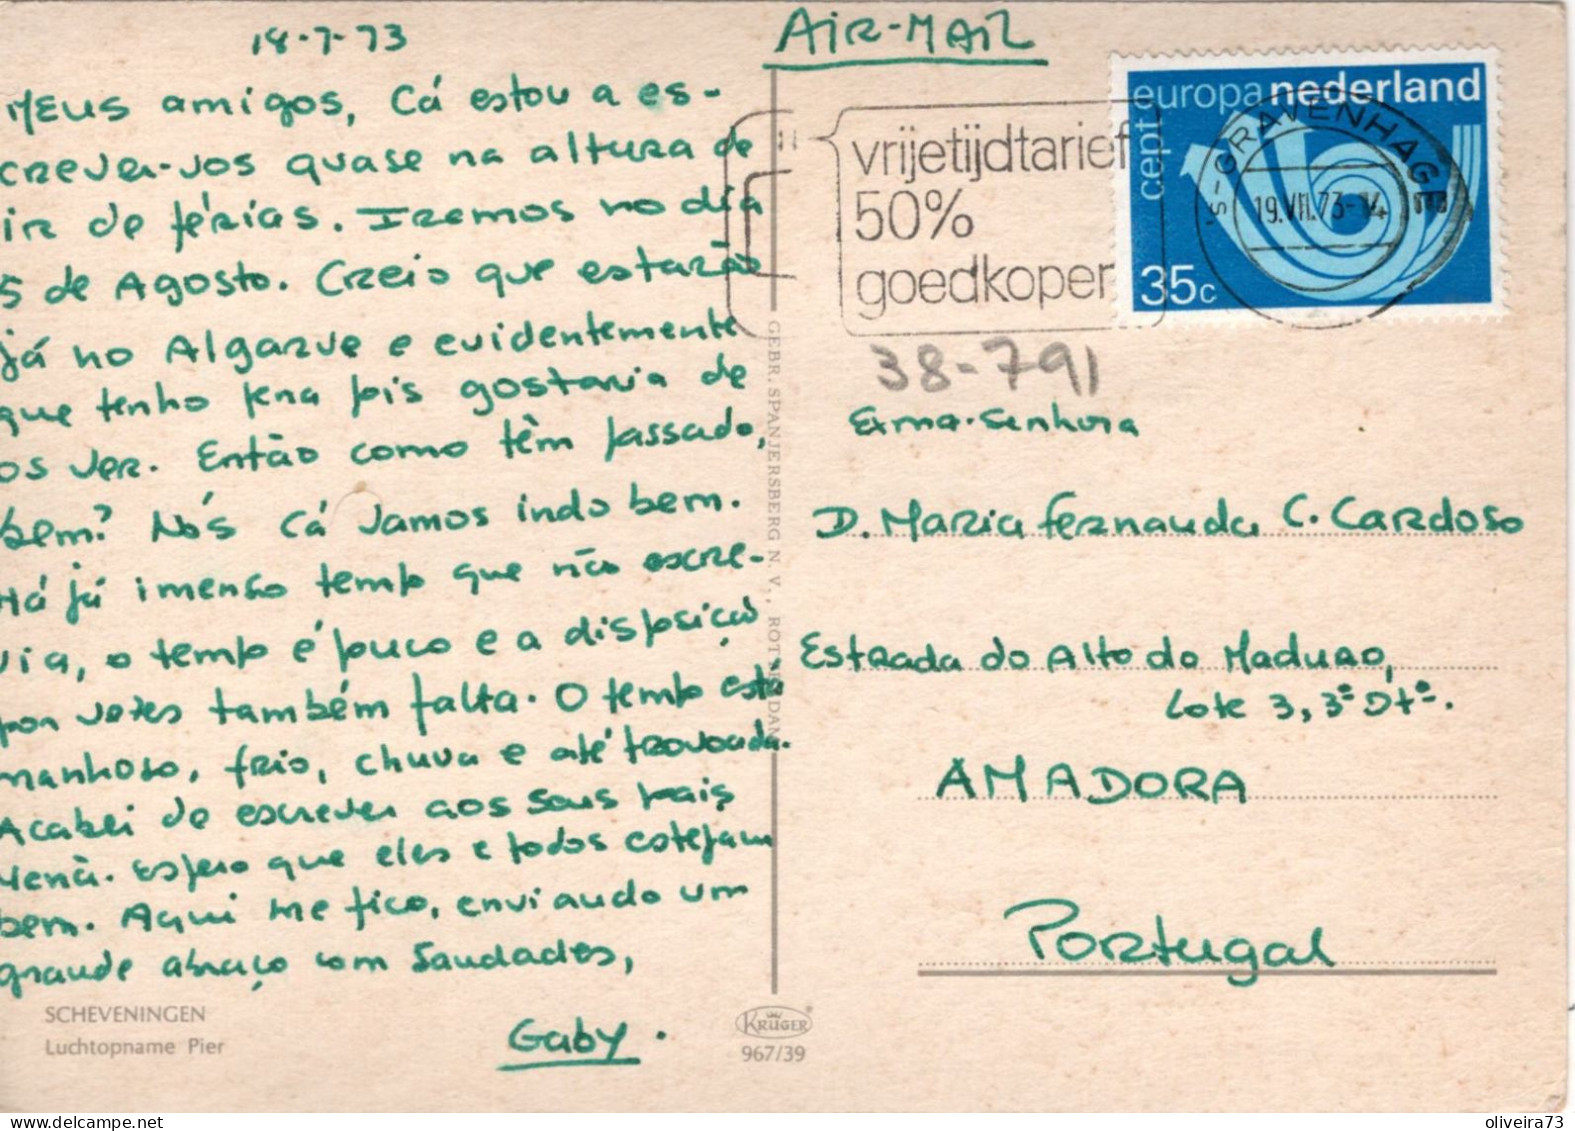 18-7-73
Meus amigos, Cá estou a es-
crever-vos quase na altura de
ir de férias. Iremos no dia
5 de Agosto. Creio que estarão
já no Algarve e evidentemente
que tenho pena pois gostaria de
os ver. Então como têm passado,
bem? Nós cá vamos indo bem.
Há já imenso tempo que não escre-
via, o tempo é pouco e a disposição
por vezes também falta. O tempo está
manhoso, frio, chuva e até trovoada.
Acabei de escrever aos seus pais
Espero que eles e todos estejam
bem. Aqui me fico, enviando um
grande abraço com saudades,
Gaby.
SCHEVENINGEN
Luchtopname Pier
GEBR. SPANJERSBERG N.V., ROTTERDAM
KRÜGER
967/39
AIR-MAIL
vrijetijdtarief
50%
goedkoper
europa nederland
cept
35c
'S-GRAVENHAGE
19.VII.73-14
38-791
Exma. Senhora
D. Maria Fernanda C. Cardoso
Estrada do Alto do Maduro,
Lote 3, 3º Dtº.
AMADORA
Portugal
oliveira73